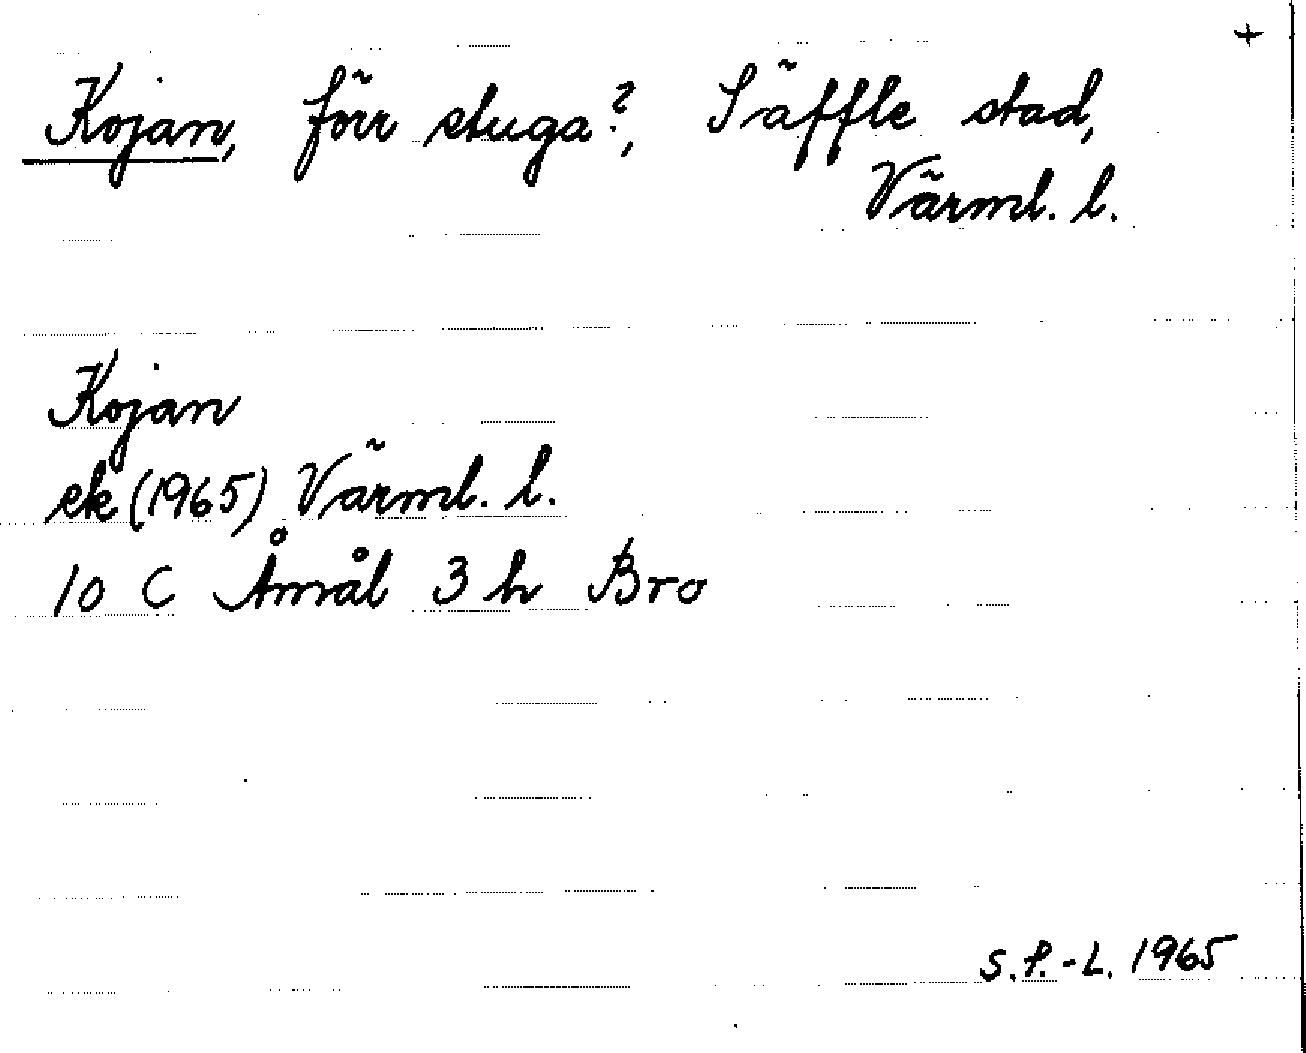 +
Kojan, förr stuga?, Säffle stad,
Värml. l.
Kojan
ek (1965) Värml. l.
10 C Åmål 3 h Bro
S.P.-L. 1965